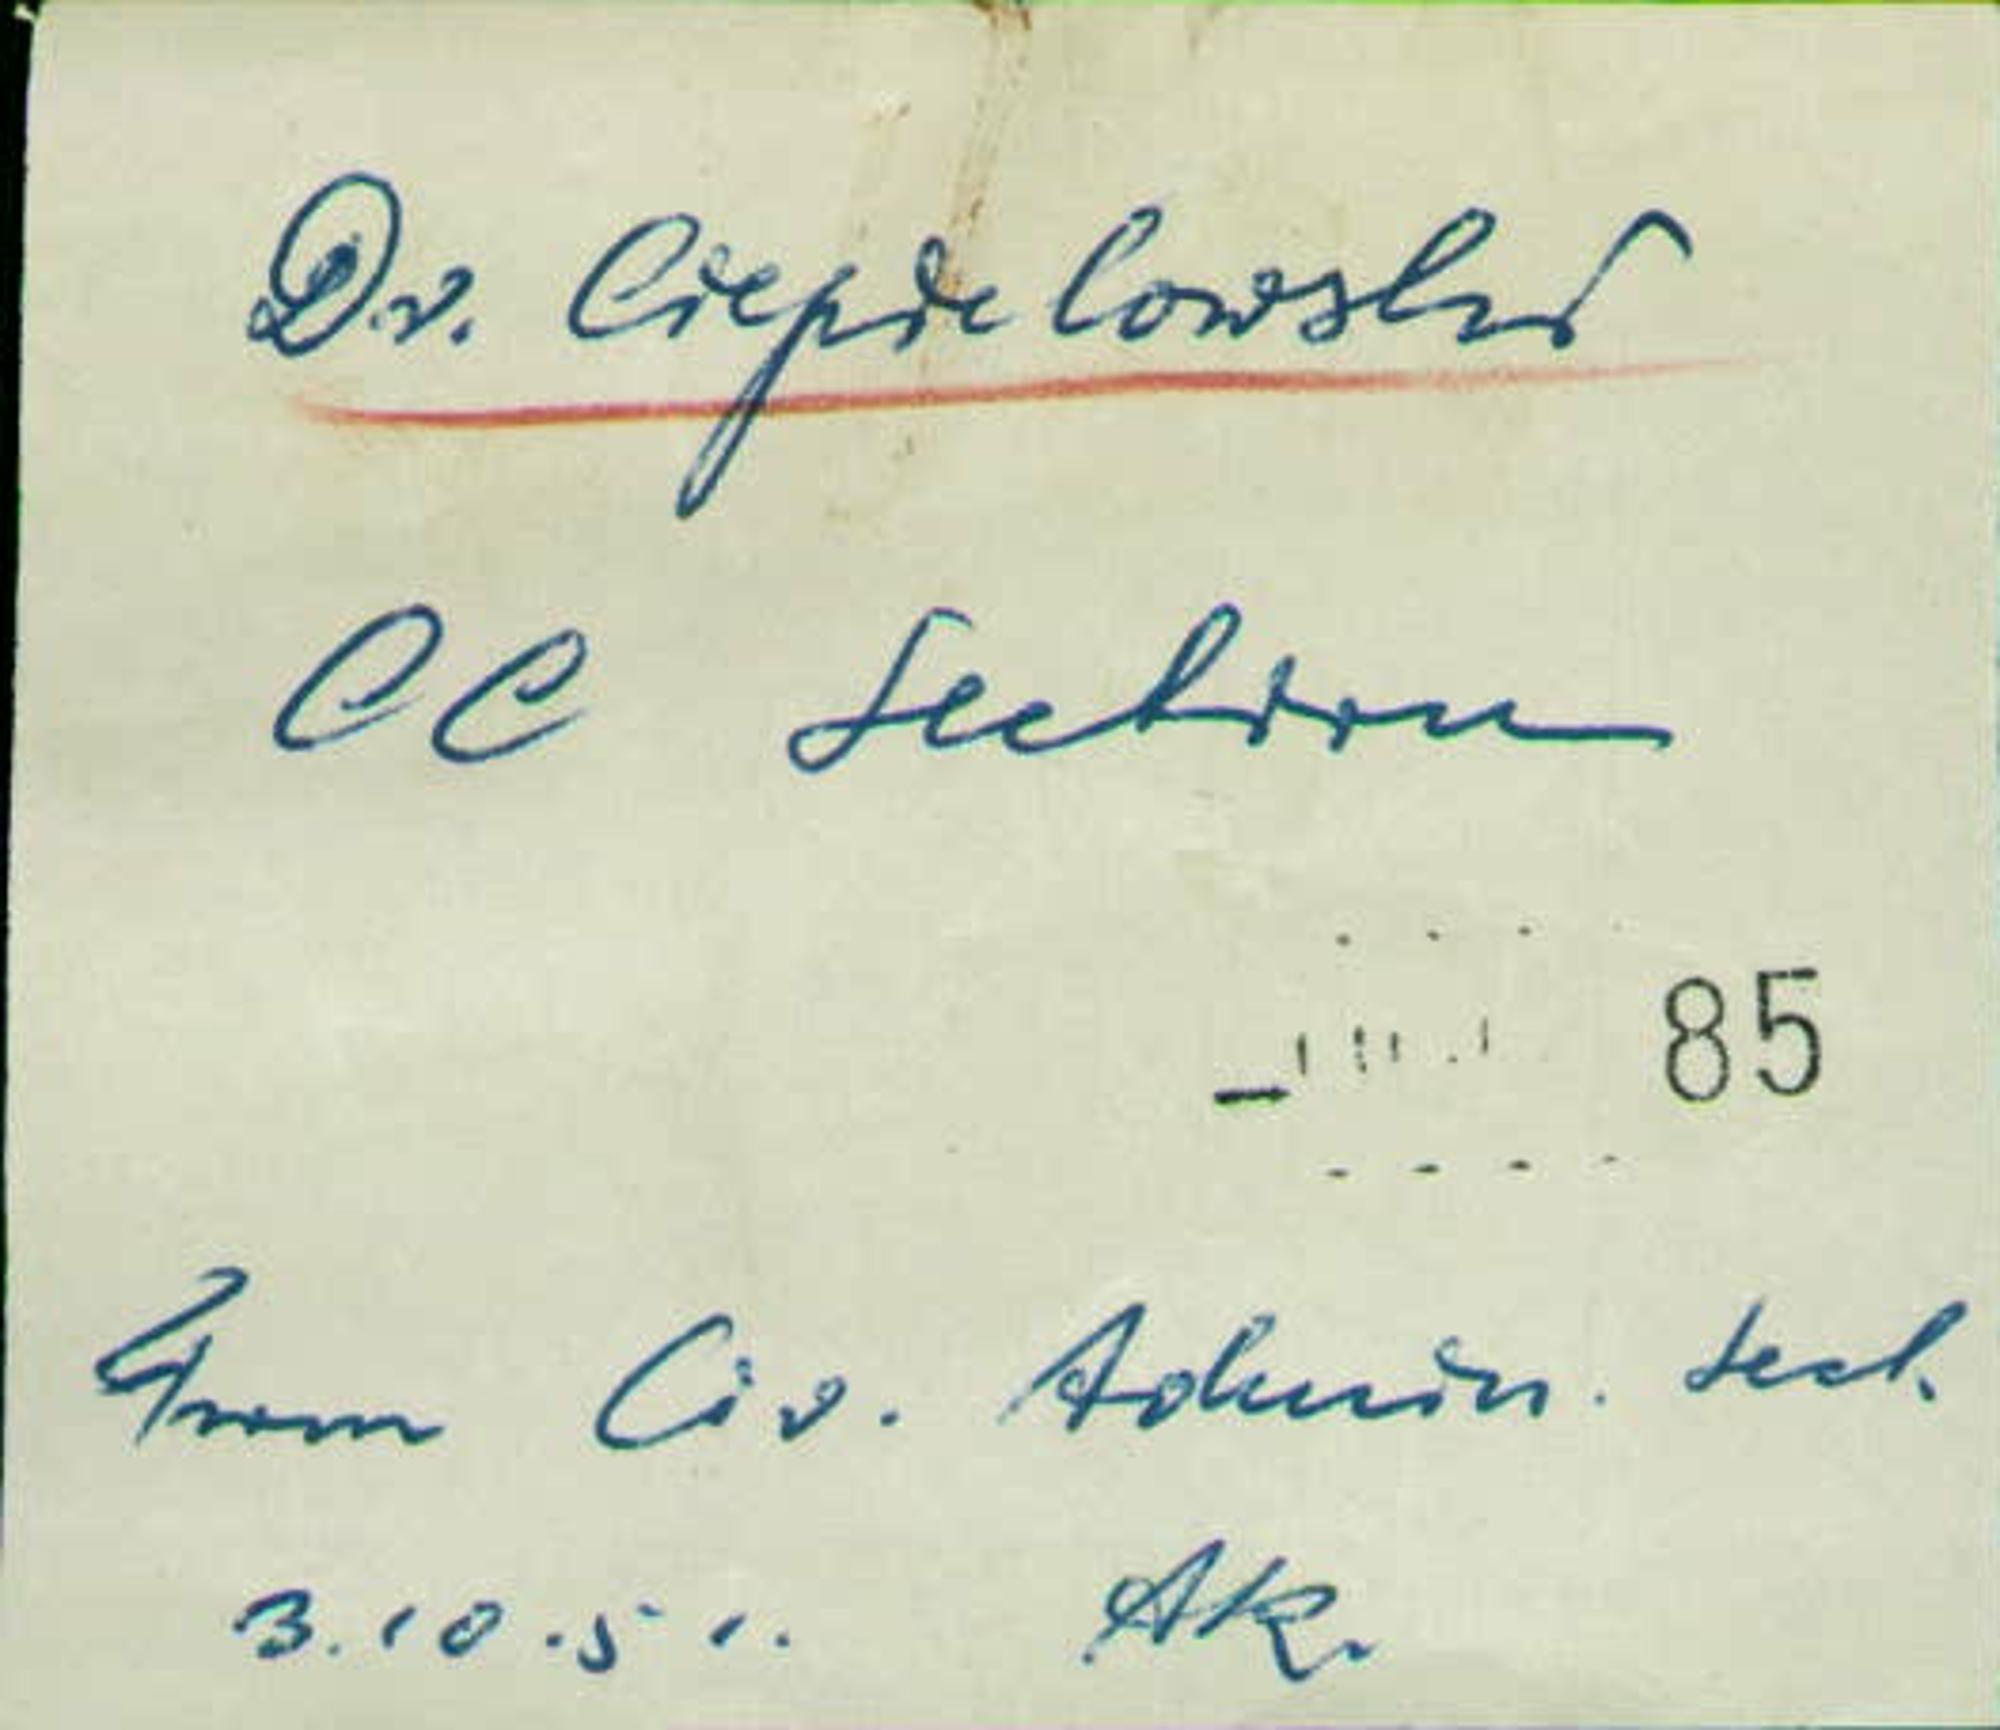 Dr. Ciepielowski
CC Section
85
From Civ. Admin. Sect.
3.10.51. AK.